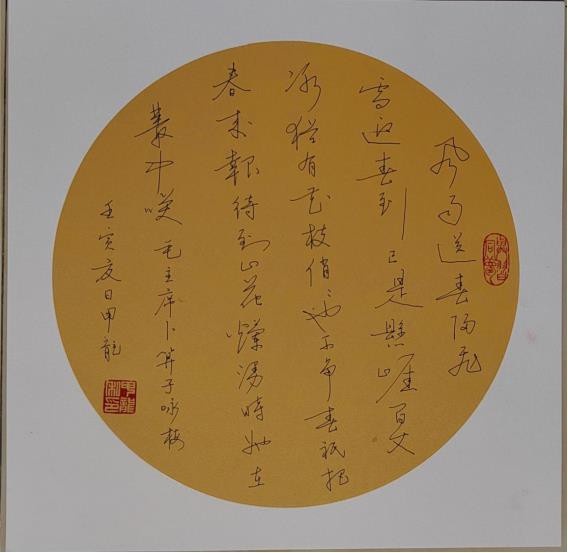 风雨送春归飞
雪迎春到已是懸崖百丈
冰猶有花枝俏俏也不争春祇把
春来報待到山花爛漫時她在
叢中咲毛主席卜算子咏梅
壬寅夏日甲龍
甲龍私印